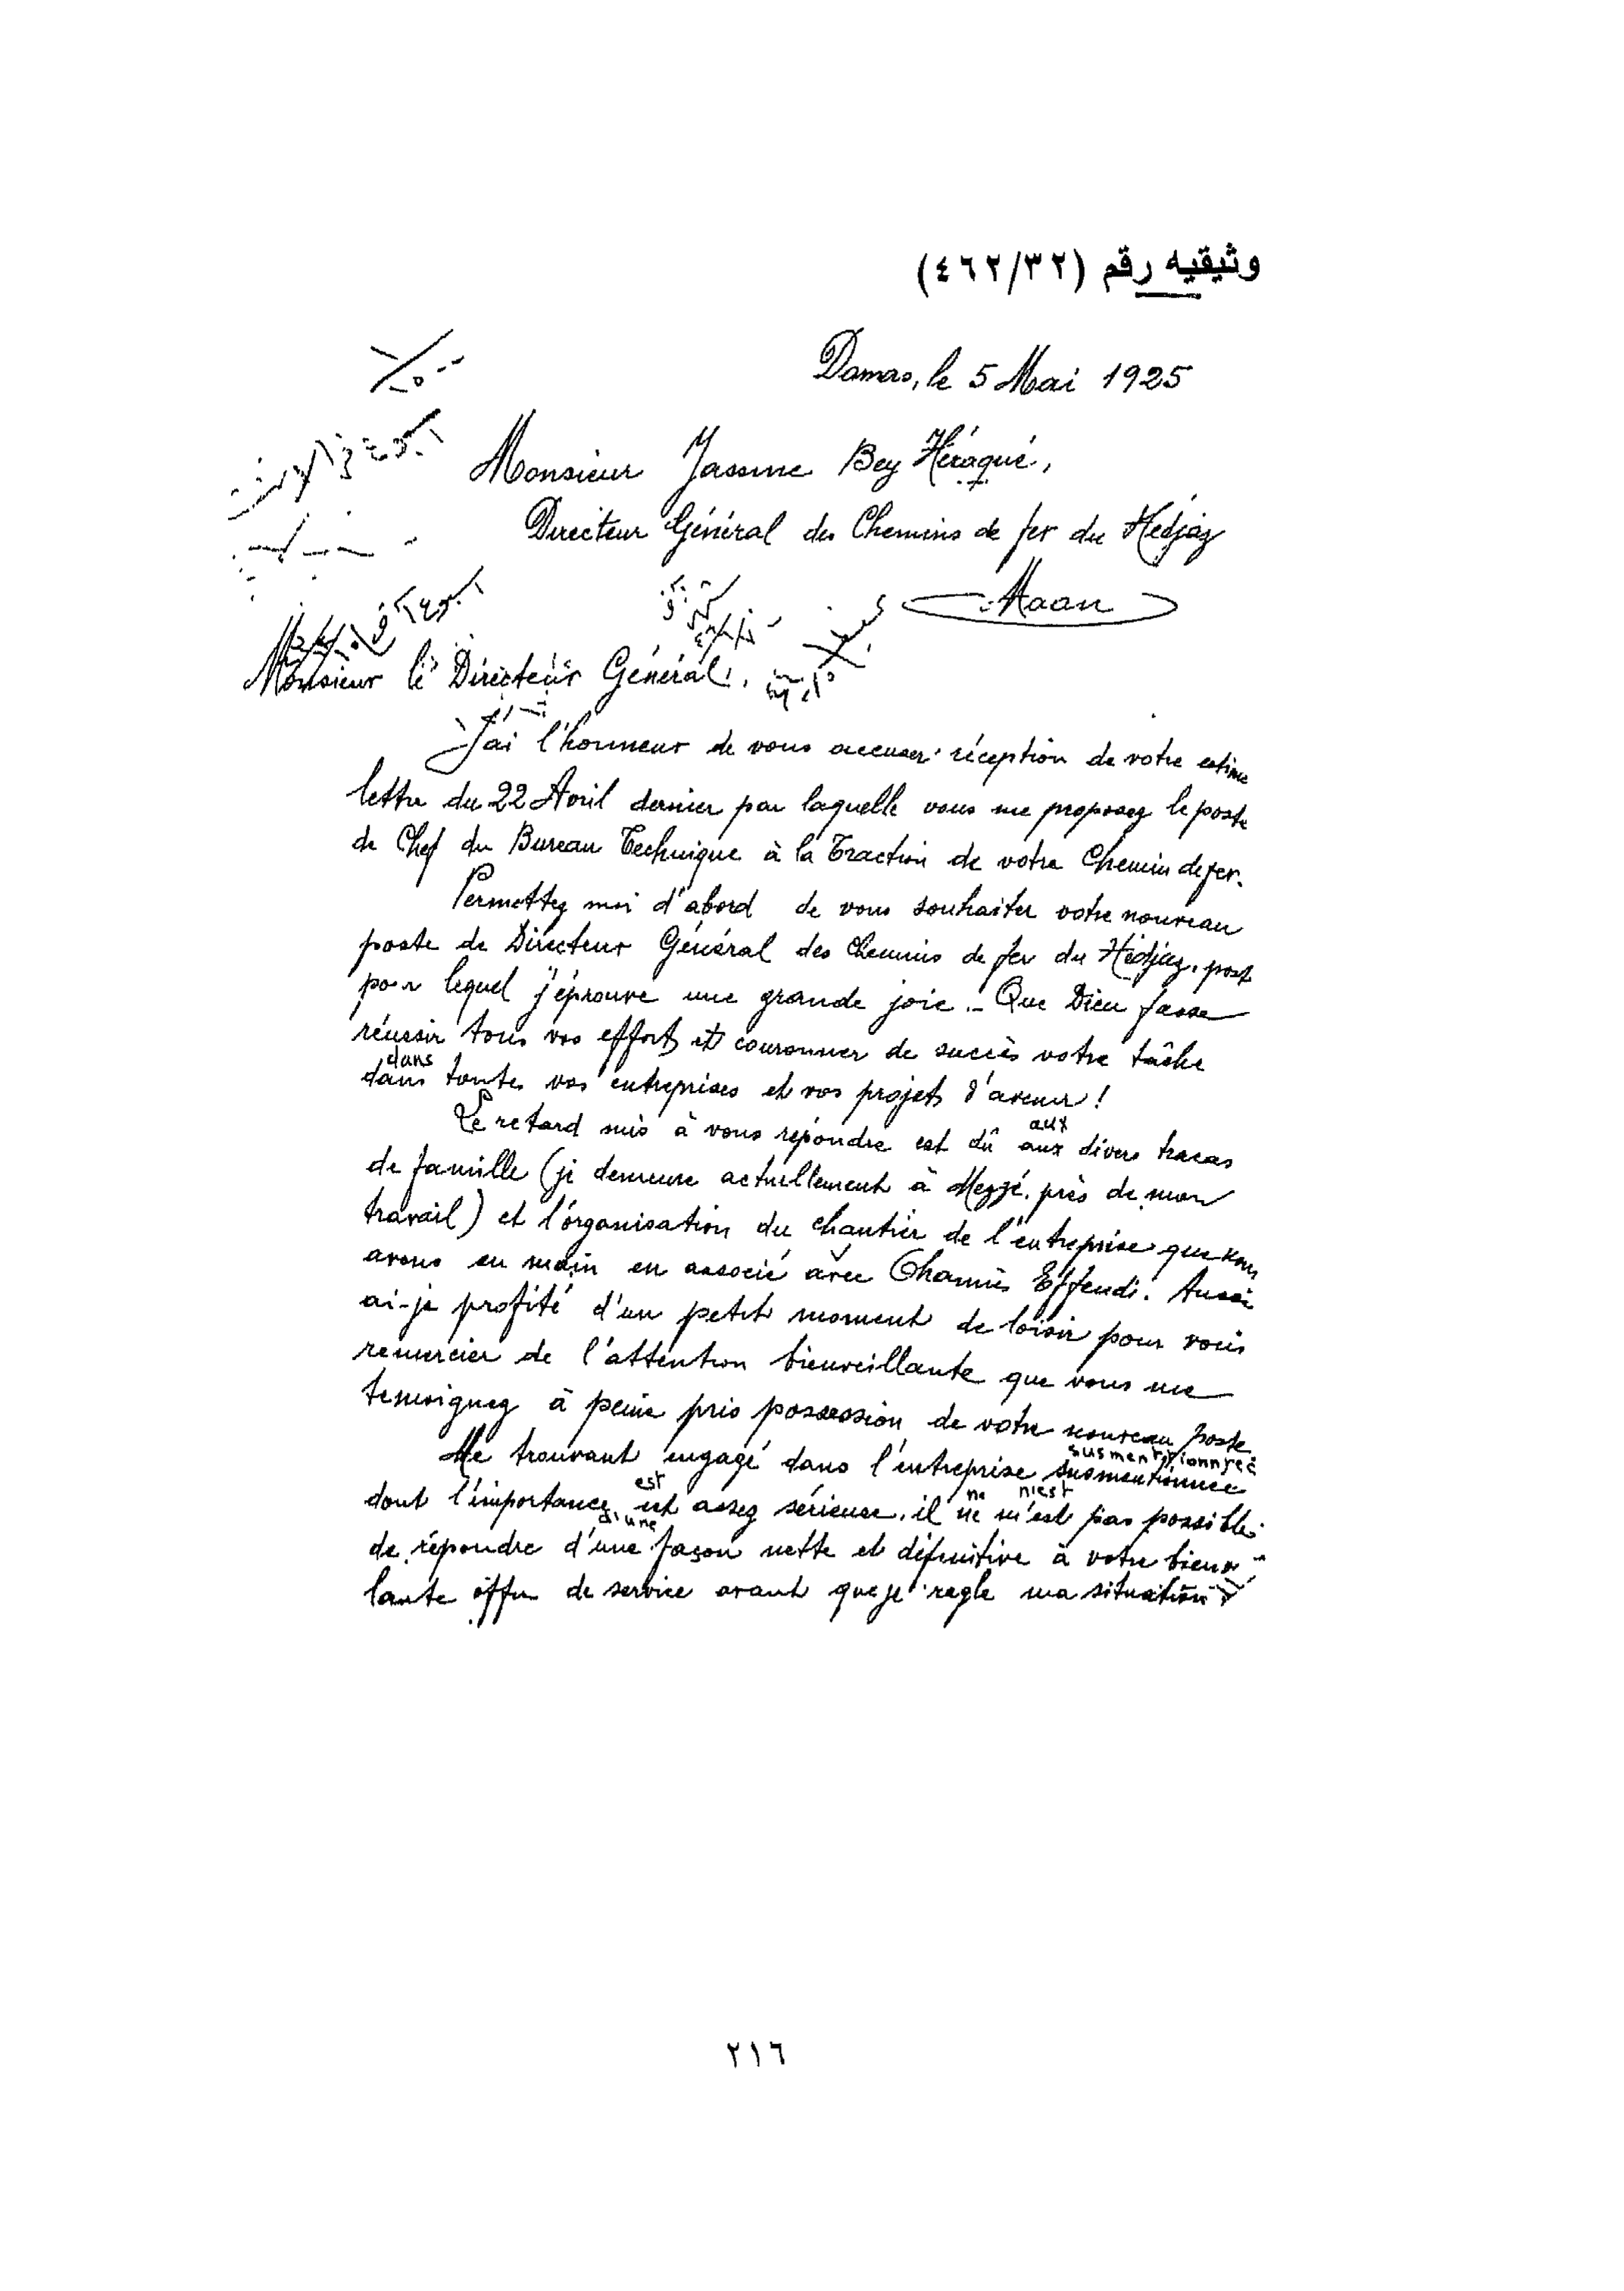 وثيقيه رقم (٤٦٢/٣٢)
Damas, le 5 Mai 1925
Monsieur Jassine Bey Héraqué,
Directeur Général des Chemins de fer du Hedjaz
Maan
Monsieur le Directeur Général,
J'ai l'honneur de vous accuser réception de votre estime
lettre du 22 Avril dernier par laquelle vous me proposez le poste
de Chef du Bureau Technique à la Traction de votre Chemin de fer.
Permettez moi d'abord de vous souhaiter votre nouveau
poste de Directeur Général des Chemins de fer du Hedjaz, post
pour lequel j'éprouve une grande joie.- Que Dieu fasse
réussir tous vos efforts et couronner de succès votre tâche
dans
dans toutes vos entreprises et vos projets d'avenir !
aux
Le retard mis à vous répondre est dû aux divers tracas
de famille (je demeure actuellement à Mezzé, près de mon
travail) et l'organisation du chantier de l'entreprise que nous
avons en main en associé avec Chamis Effendi. Aussi
ai-je profité d'un petit moment de loisir pour vous
remercier de l'attention bienveillante que vous me
temoignez à peine pris possession de votre nouveau poste
Me trouvant engagé dans l'entreprise susmentionnée
susmentionnée
dont l'importance est assez sérieuse, il ne m'est pas possible
est ne n'est
de répondre d'une façon nette et définitive à votre bienv
d'une
lante offre de service avant que je règle ma situation
٢١٦